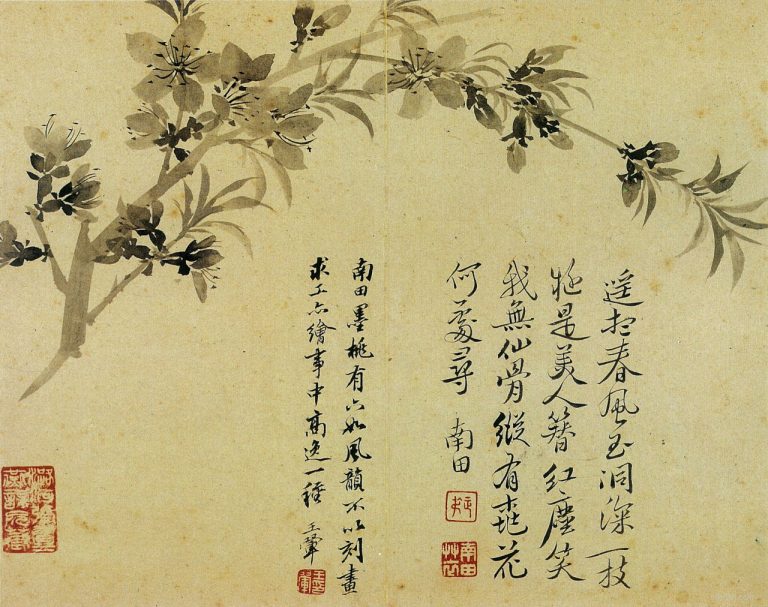 遥春風玉洞深一枝
是美人簪紅塵笑
我無仙骨縱有桃花
何處尋 南田
南田艸衣
南田墨桃有六如風韻不以刻畫
求工亦繪事中高逸一種 王翬